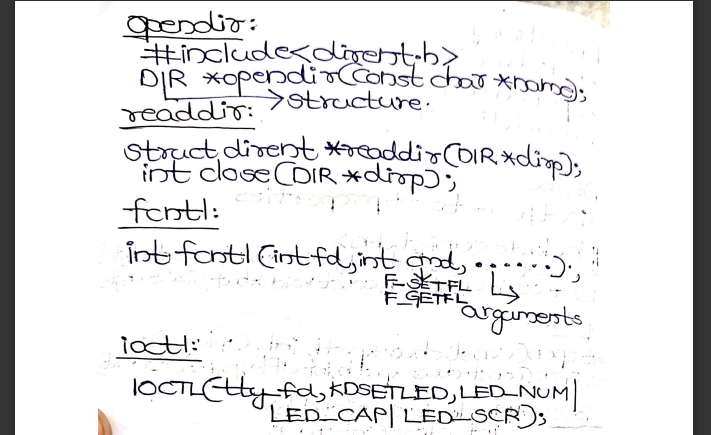 opendir:
#include<dirent.h>
DIR *opendir(const char *name);
→structure.
readdir:
struct dirent *readdir(DIR *dirp);
int close(DIR *dirp);
fcntl:
int fcntl(int fd, int cmd, .......);
F_SETFL
F_GETFL
arguments
ioctl:
IOCTL(tty_fd, KDSETLED, LED_NUM|
LED_CAP| LED_SCR);